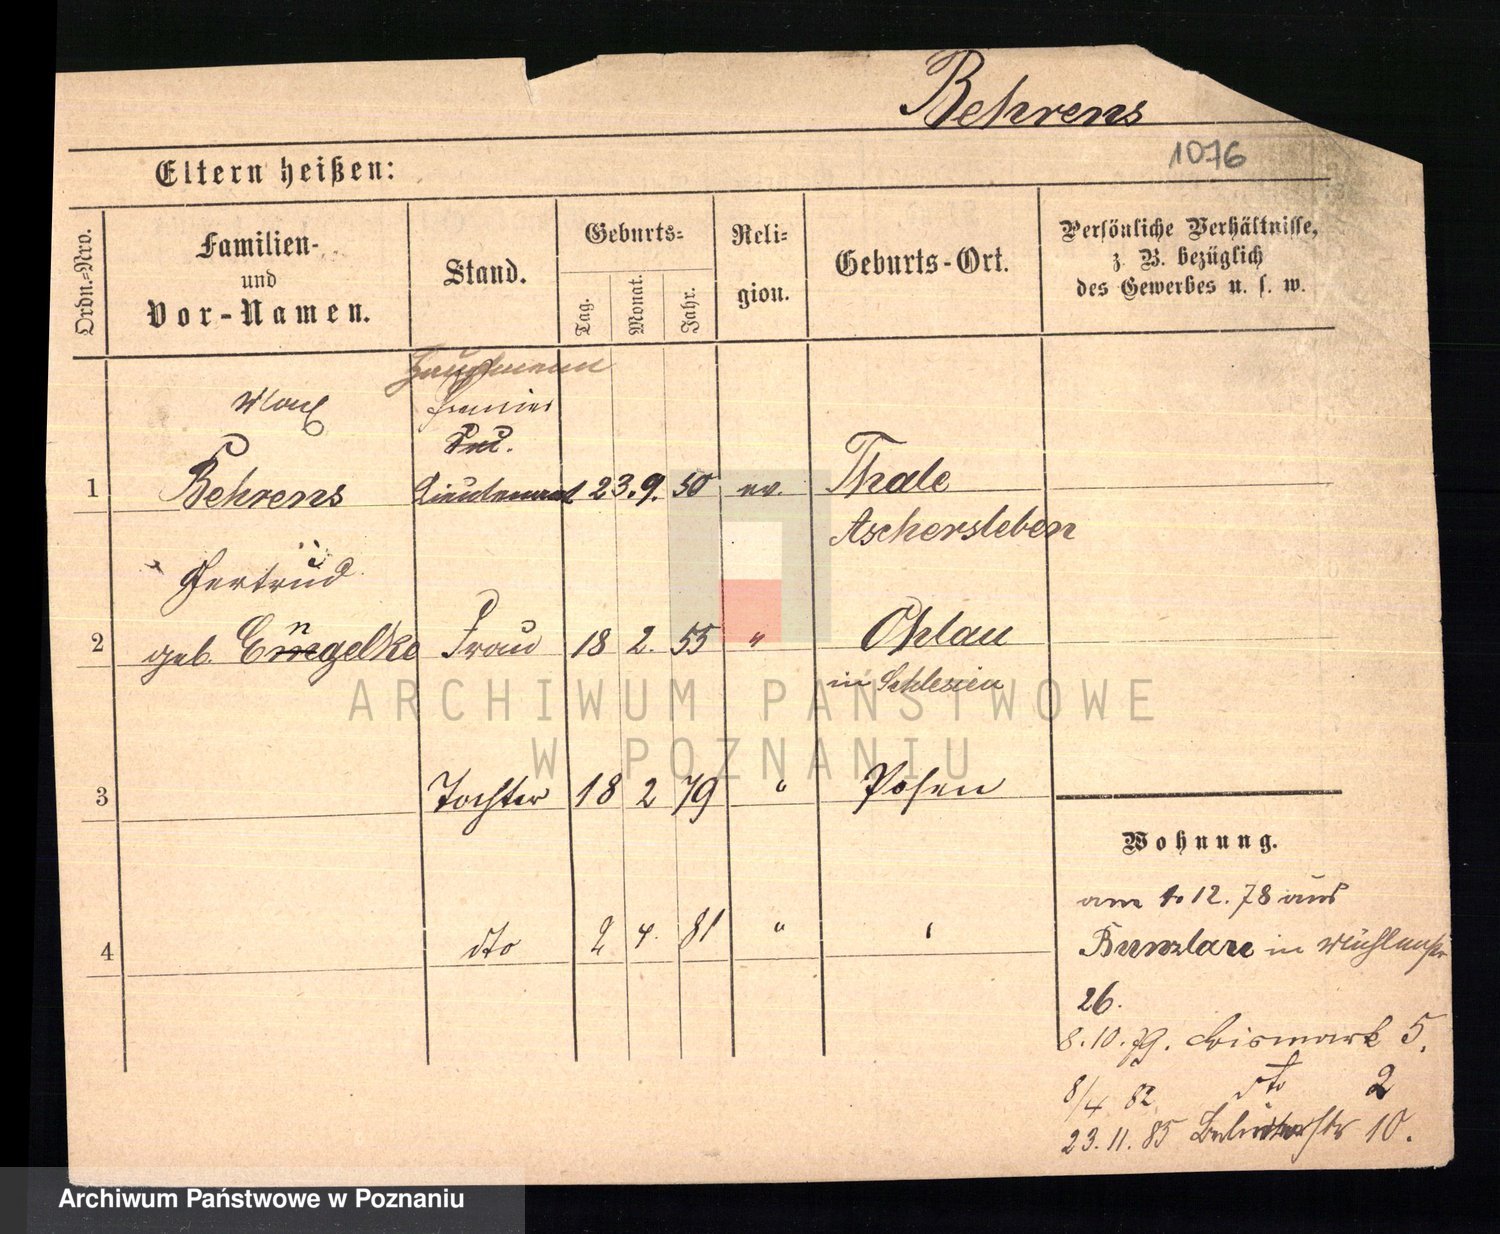 Behrens
1076
Eltern heißen:
Ordn.=Nro.
Familien-
und
Vor-Namen.
Stand.
Geburts=
Tag.
Monat.
Jahr.
Reli=
gion.
Geburts-Ort.
Persönliche Verhältnisse,
z. B. bezüglich
des Gewerbes u. s. w.
Hauptmann
Max
Premier
1 Behrens Lieutenant 23. 9. 50 ev. Thale
Aschersleben
Gertrud
2 geb. Engelke Frau 18 2. 55 " Ohlau
in Schlesien
3 Tochter 18 2 79 " Posen
4 dto 2 4. 81 " "
Wohnung.
am 1. 12. 78 aus
Bunzlau in Mühlenstr
26.
8. 10. 79. Bismark 5.
8/4 82. dto 2
23. 11. 85 10.
ARCHIWUM PAŃSTWOWE
W POZNANIU
Archiwum Państwowe w Poznaniu